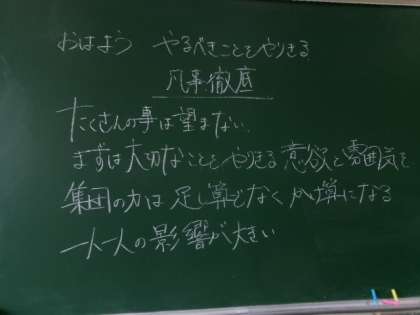 おはよう やるべきことをやりきる
凡事徹底
たくさんの事は望まない
まずは大切なことをやりきる意欲と雰囲気を
集団の力は足し算でなくかけ算になる
一人一人の影響が大きい